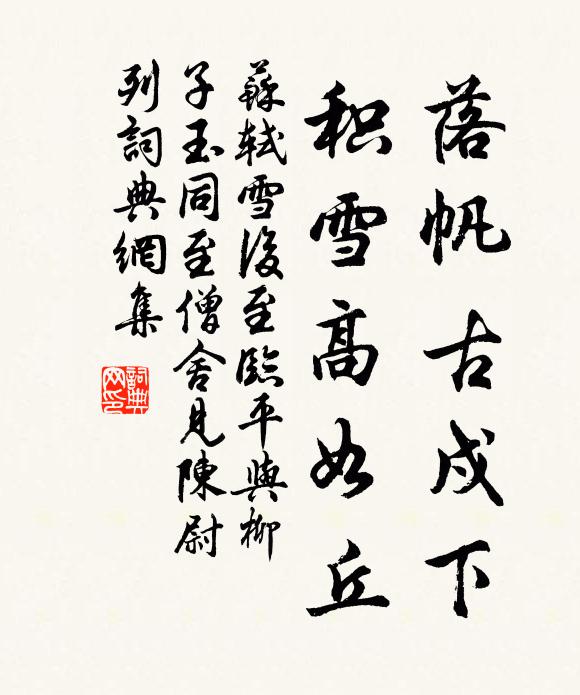 落帆古戍下
积雪高如丘
蘇軾雪後至臨平與柳
子玉同至僧舍見陳尉
列詞典網集
詞典
网印